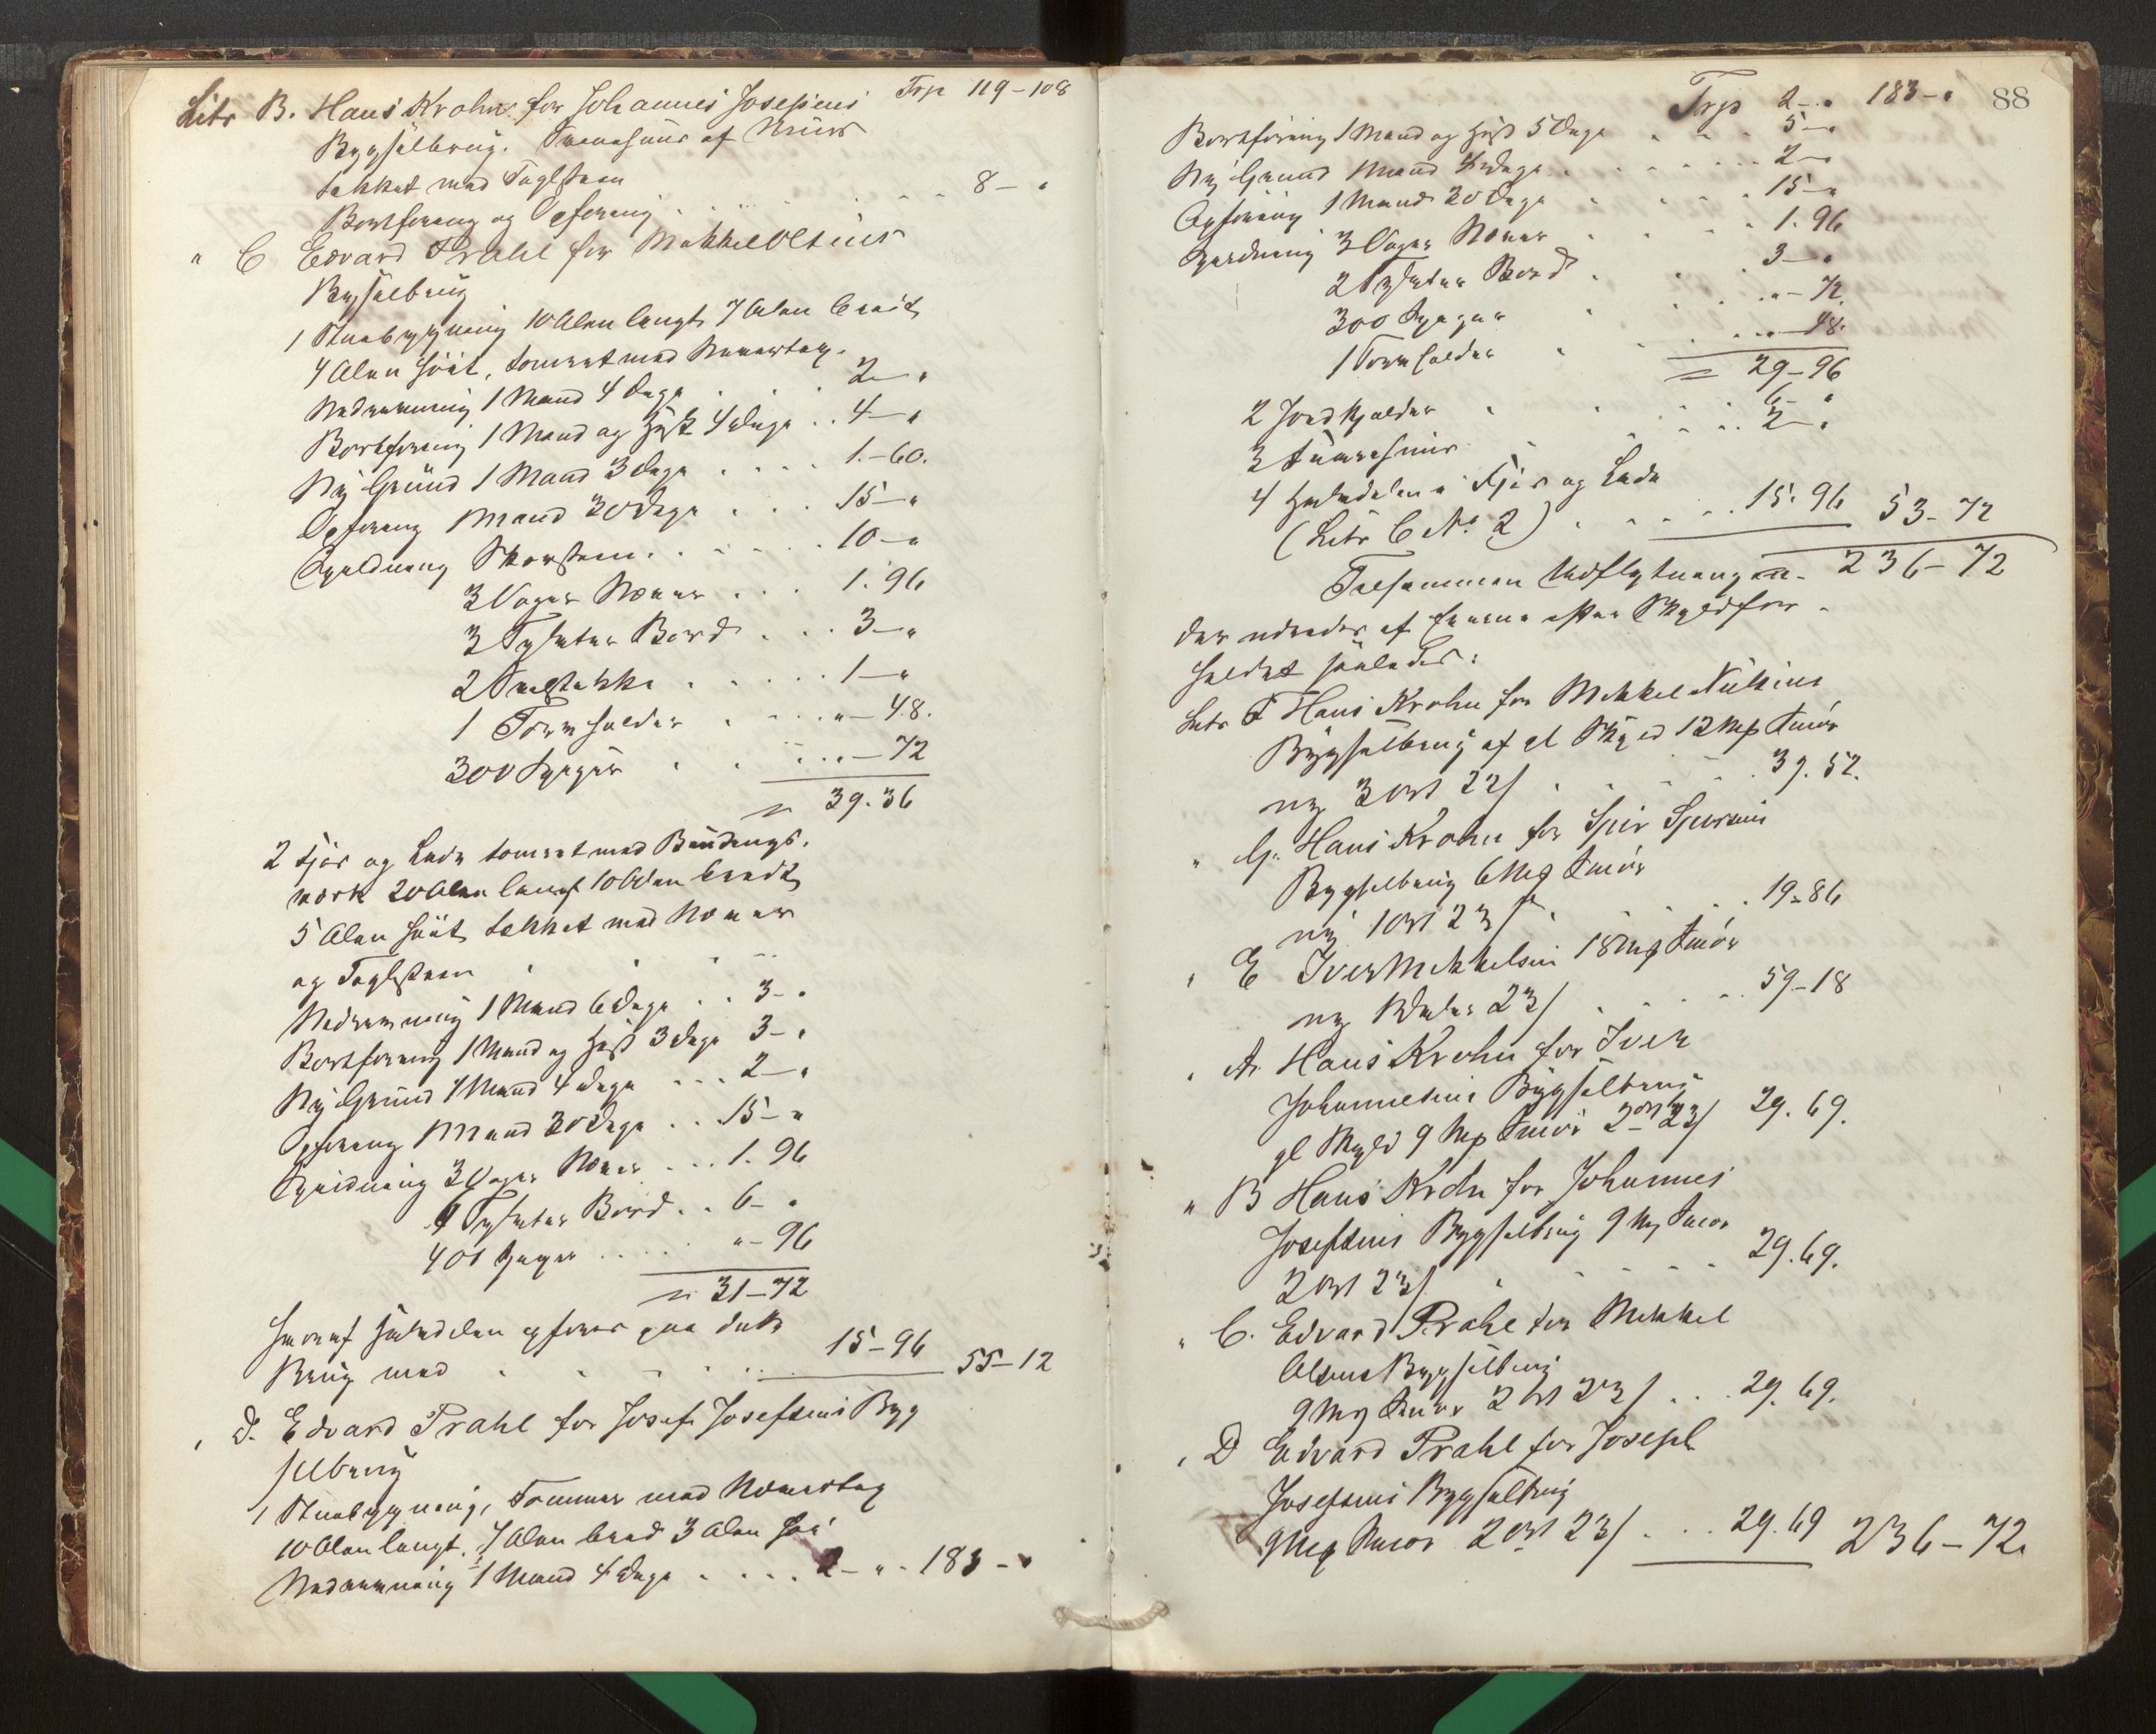 Trp 119-108
Litr B. Hans Krohn for Johannes Josefsens
Bygselbrug. Tværhuus af Muur
tækket med Taglsteen
Bortføring og Opføring . . . . 8 - "
" C Edvard Prahl for Mikkel Olsens
Bygselbrug
1 Stuebygning 10 Alen langt 7 Alen bredt
4 Alen höit, tömret med Nævertag.
Nedrivning 1 Mand 4 Dage . . . 2 - "
Bortføring 1 Mand og Hest 4 Dage . . 4 - "
Ny Grund 1 Mand 3 Dage . . . . 1.-60.
Opføring 1 Mand 30 Dage . . . 15 - "
Skorsteen . . . . . 10 - "
3 Voger Næver . . . 1. 96
3 Tylvter Bord . . . 3 - "
2 . . . . . 1 - "
1 . . . . " - 48.
300 . . . . - 72
39. 36
2 Fjøs og Lade tömret med Bindings-
værk 20 Alen langt 10 Alen bredt
5 Alen höit tækket med Næver
og Taglsteen
Nedrivning 1 Mand 6 Dage . . 3 - "
Bortføring 1 Mand og Hest 3 Dage 3 - "
Ny Grund 1 Mand 4 Dage . . . 2 - "
Opføring 1 Mand 30 Dage . . 15 - "
3 Voger Næver . . . 1. 96
Tylvter Bord . . 6 - "
400 . . . . . " - 96
31 - 72
Heraf Halvdelen opføres paa dette
Brug med . . . . . 15 - 96 55 - 12
" D. Edvard Prahl for Josef Josefsens Byg
selbrug
1 Stuebygning, Tömmer med Nævertag
10 Alen langt, 7 Alen bred 3 Alen höi
Nedrivning 1 Mand 4 Dage . . . . 2 - " - 183 - "
88
Trp 2 - " 183 - "
Bortføring 1 Mand og Hest 5 Dage . . . 5 - "
Ny Grund 1 Mand 4 Dage . . . . . . 2 - "
Opføring 1 Mand 30 Dage . . . . 15 - "
3 Voger Næver . . . . 1. 96
2 Tylvter Bord . . . 3 - "
300 . . . . " - 72.
1 . . . . 48.
29 - 96
2 Jordkjelder . . . . . 6 - "
3 . . . . 2 - "
4 Halvdelen i Fjøs og Lade
(Litr C No 2) . . . . . 15. 96 53 - 72
Tilsammen Udflytningen - 236 - 72
der udredes af Eierne efter Skyldfor-
holdet saaledes:
Litr F Hans Krohn for Mikkel Nilsens
Bygselbrug af gl Skyld 12 Mrk Smör
ny 3 Ort 22 / . . . . . 39. 52.
" G. Hans Krohn for Sjur Sjursens
Bygselbrug 6 Mrk Smör
ny 1 Ort 23 / . . . . . 19 - 86
" E Iver Mikkelsen 18 Mrk Smör
ny 1 Daler 23 / . . . . . 59 - 18
" A. Hans Krohn for Iver
Johannesens Bygselbrug
gl Skyld 9 Mrk Smör 2 Ort 23 / 29. 69.
" B Hans Krohn for Johannes
Josefsens Bygselbrug 9 Mrk Smör
2 Ort 23 / . . . . . 29. 69.
" C. Edvard Prahl for Mikkel
Olsens Bygselbrug
9 Mrk Smör 2 Ort 23 / . . . 29. 69.
" D Edvard Prahl for Joseph
Josefsens Bygselbrug
9 Mrk Smör 2 Ort 23 / . . . 29. 69 236 - 72.